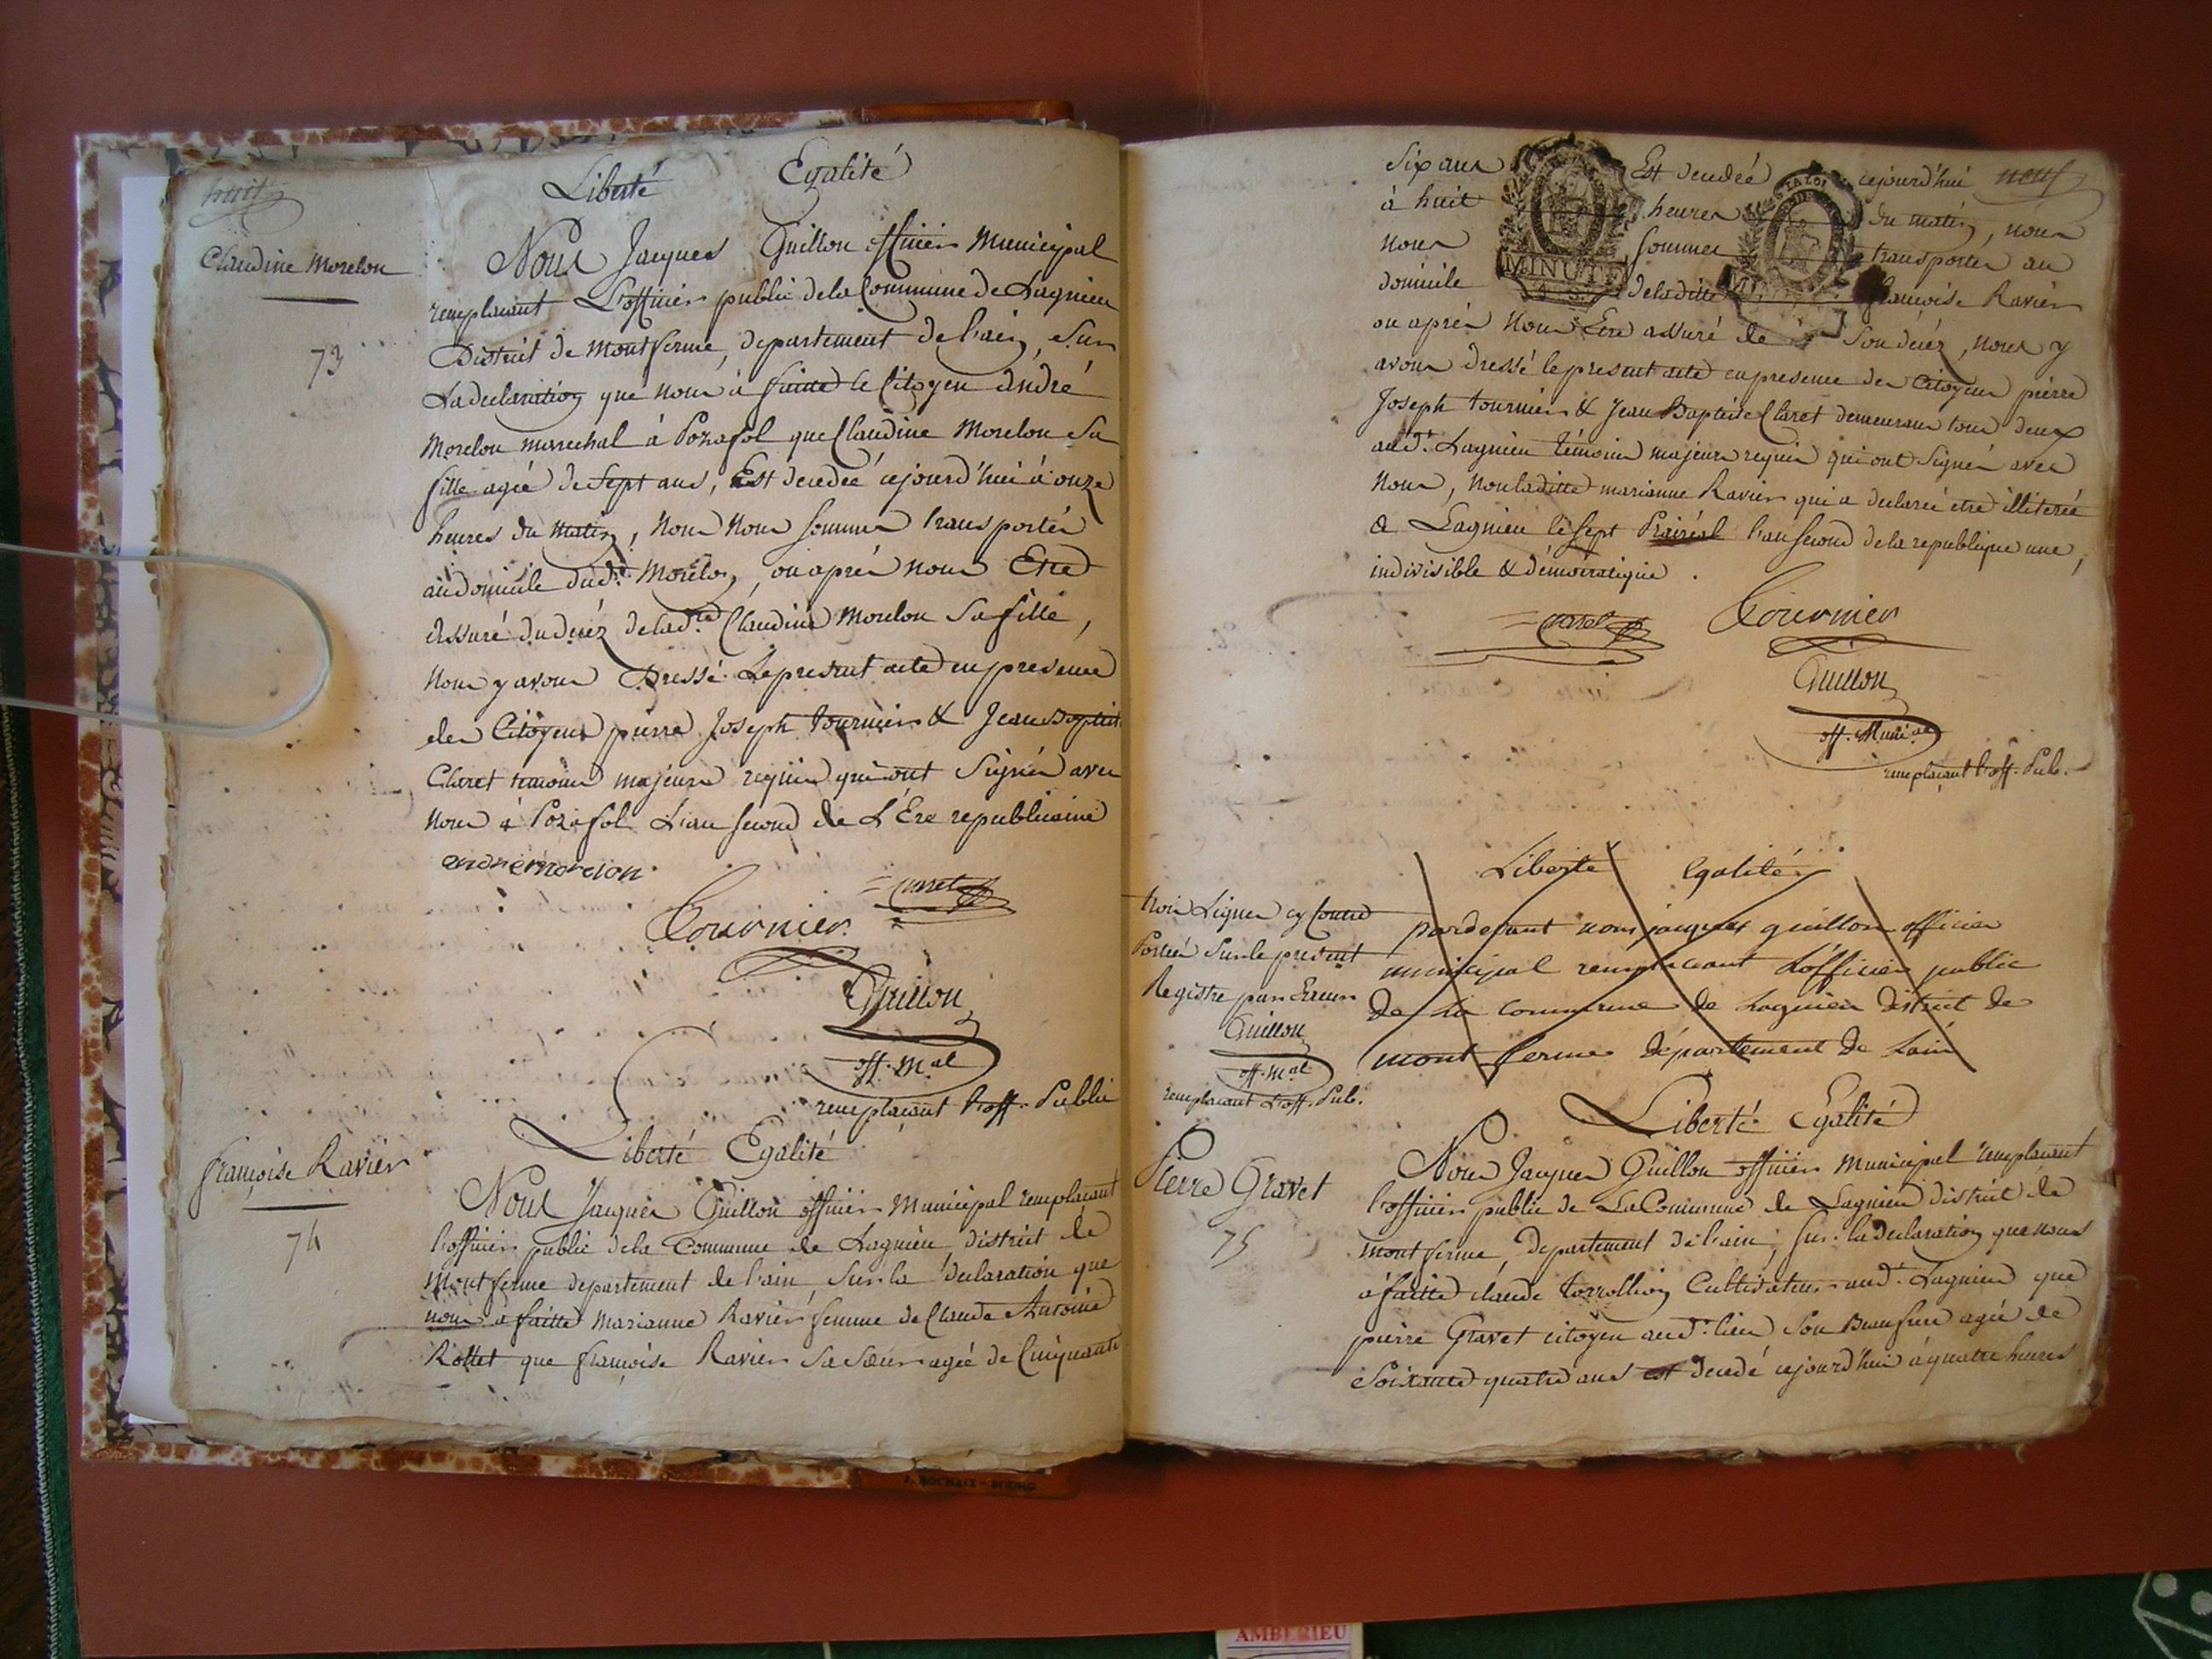 huit
Liberté Egalité
Claudine Morelon
73
Nous Jacques Guillon officier Municipal
remplacant L'officier public de la Commune de Lagnieu
District de Montferme, departement de l'ain, sur
La declaration que nous à faitte le Citoyen André
Morelon marechal à Pozafol que Claudine Morelon Sa
fille agée de Sept ans, Est decedée cejourd'hui à onze
heures du matin, Nous Nous sommes transportés
au domicile dud.t Morelon, ou après nous Etre
Assuré du decéz de lad.te Claudine Morelon Sa fille,
Nous y avons Dressé Le present acte en presence
des Citoyens pierre Joseph tournier & Jean Baptiste
Claret temoins majeurs requis qui ont Signés avec
Nous à Pozafol L'an second de L'Ere republicaine
andré morelon
Claret
Tournier
Guillon
off. M.al
remplacant l'off. Public
Liberté Egalité
françoise Ravier
74
Nous Jacques Guillon officier Municipal remplaçant
l'officier public dela Commune de Lagnieu district de
Montferme departement de l'ain, sur la declaration que
nous a faitte marianne Ravier femme de Claude Antoine
Rollet que françoise Ravier Sa sœur agée de Cinquante
Six ans Est decedée cejourd'hui neuf
à huit heures du matin, nous
MINUTE
nous sommes transportés au
domicile de laditte françoise Ravier
ou après Nous Etre assuré de Son decéz, nous y
avons dressé le present acte en presence des Citoyens pierre
Joseph tournier & Jean Baptiste Claret demeurans tous deux
aud.t Lagnieu témoins majeurs requis qui ont Signés avec
Nous, non laditte marianne Ravier qui a declarée etre illiterée
a Lagnieu le Sept Prairéal l'an second de la republique une,
indivisible & démocratique.
Claret
Tournier
Guillon
off. Muni.al
remplaçant l'off. Pub.
Liberté Egalité
pardevant nous jacques guillon officier
municipal remplaceant L'officier public
de La commune de Lagnieu district de
mont ferme département de Lain
trois Lignes cy Contre
Portées Sur le present
Registre par Erreur
Guillon
off. M.al
remplacant L'off. Pub.
Liberté Egalité
Pierre Gravet
75
Nous Jacques Guillon officier Municipal remplacant
l'officier public de La Commune de Lagnieu district de
montferme, departement de l'ain, sur la declaration que nous
à faitte claude torrollion Cultivateur aud.t Lagnieu que
pierre Gravet citoyen aud.t lieu Son Beaufrere agée de
Soixante quatre ans est decedé cejourd'hui à quatre heures
J. ROCHAIX - BOURG
AMBERIEU